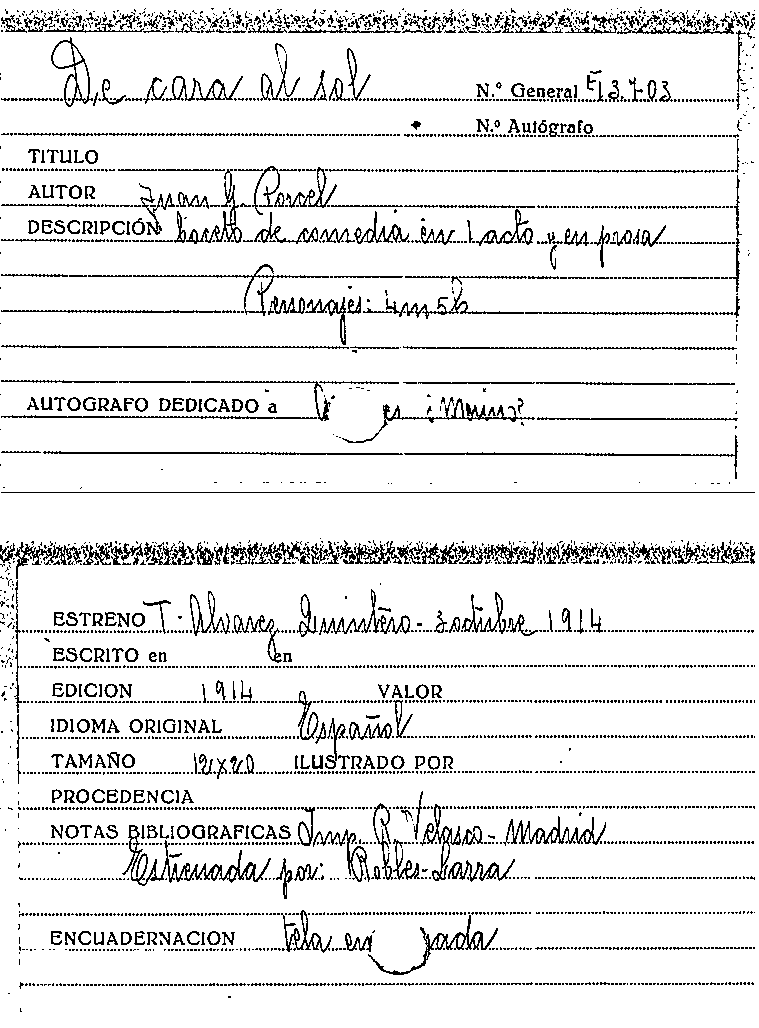 De cara al sol N.º General E 13.7-03
N.º Autógrafo
TITULO
AUTOR Juan G. Porcel
DESCRIPCIÓN boceto de comedia en 1 acto y en prosa
Personajes: 4m5h
AUTOGRAFO DEDICADO a es ¿Merino?
ESTRENO T. Alvarez Quintero - 3 octubre 1914
ESCRITO en en
EDICION 1914 VALOR
IDIOMA ORIGINAL Español
TAMAÑO 12x20 ILUSTRADO POR
PROCEDENCIA
NOTAS BIBLIOGRAFICAS Imp. R. Velasco - Madrid
Estrenada por: Robles-Larra
ENCUADERNACION tela en jada